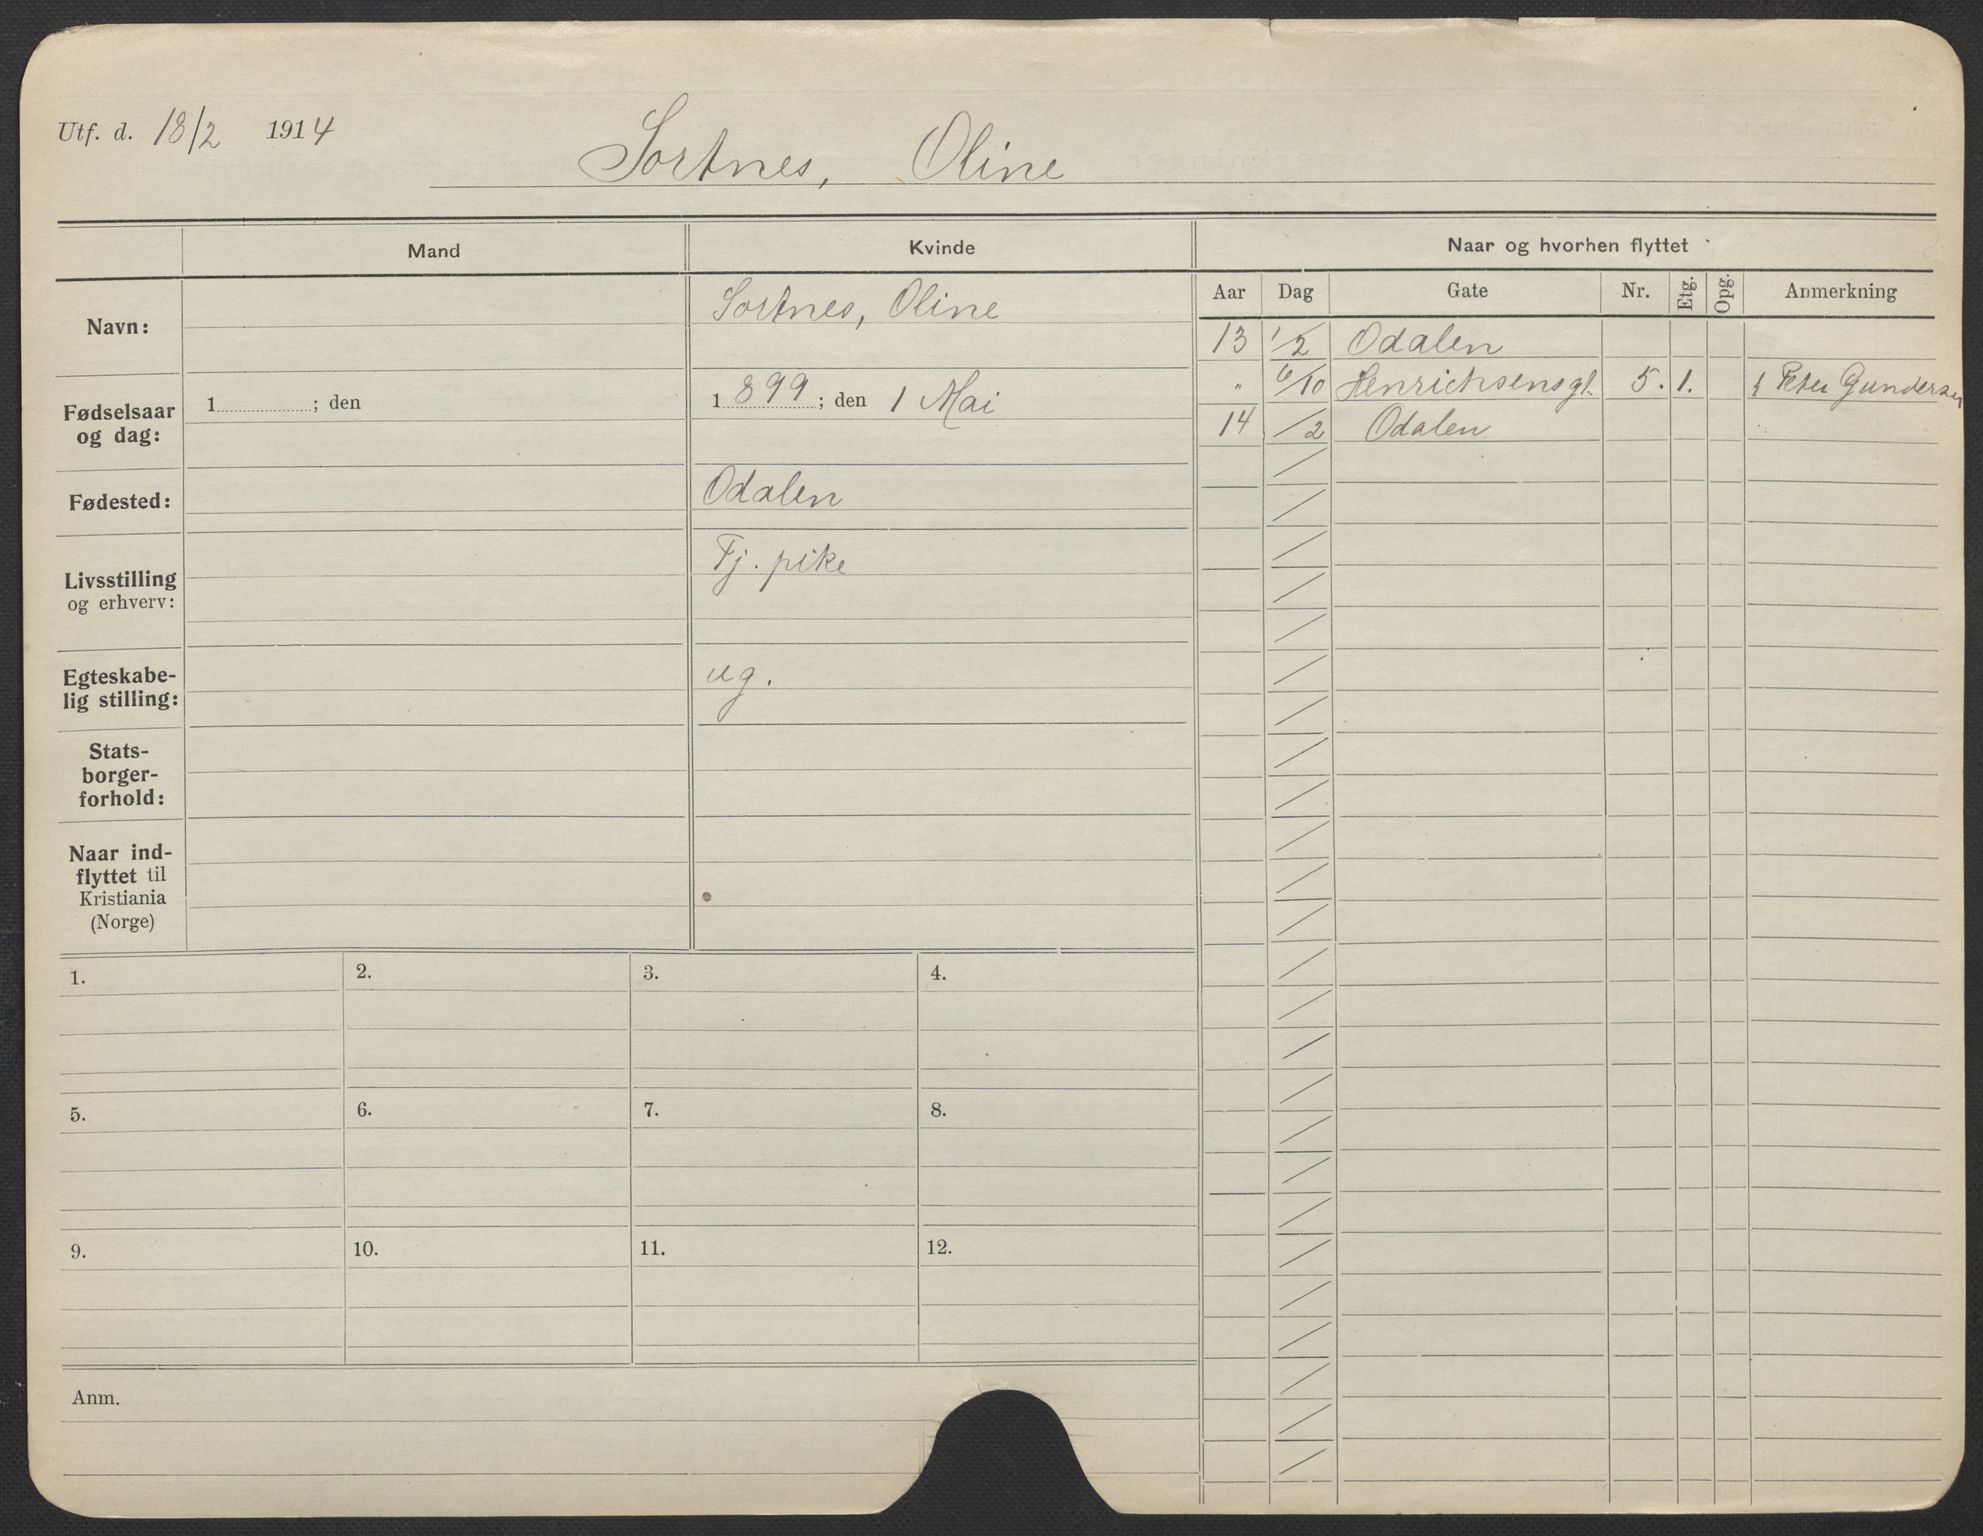 Utf. d. 18/2 1914
Sortnes, Oline
Mand
Kvinde
Naar og hvorhen flyttet
Aar Dag Gate Nr. Etg. Opg. Anmerkning
Navn:
Sortnes, Oline
Fødselsaar
og dag:
1 ; den
1 899 ; den 1 Mai
Fødested:
Odalen
Livsstilling
og erhverv:
Tj. pike
Egteskabe-
lig stilling:
ug.
Stats-
borger-
forhold:
Naar ind-
flyttet til
Kristiania
(Norge)
13 1/2 Odalen
" 6/10 Henrichsensgt. 5. 1. Peter Gundersen
14 /2 Odalen
1. 2. 3. 4.
5. 6. 7. 8.
9. 10. 11. 12.
Anm.